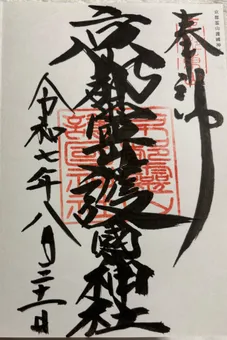 奉拝
京都霊山護國神社
令和七年八月二十一日